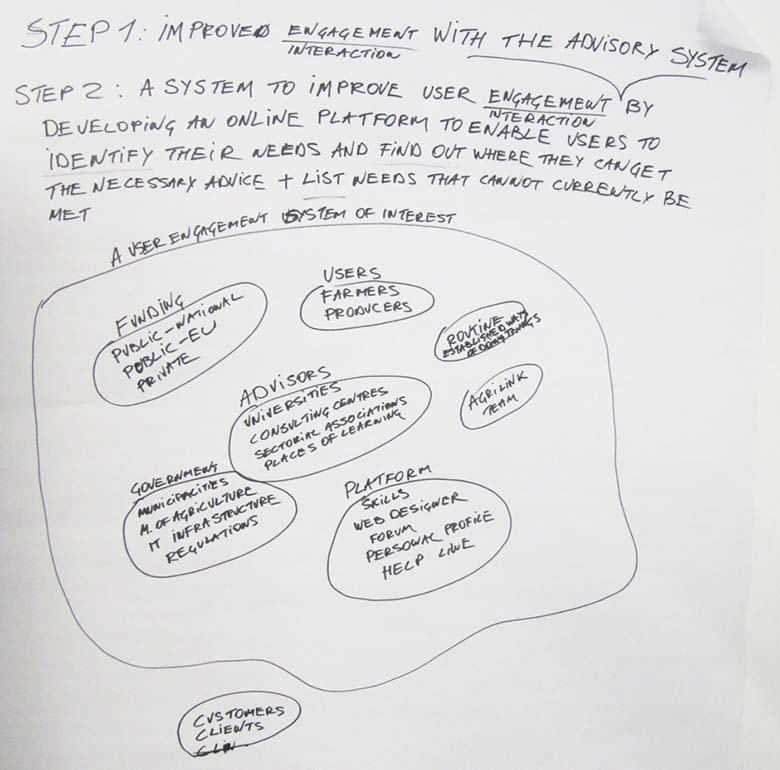 STEP 1: IMPROVED ENGAGEMENT WITH THE ADVISORY SYSTEM
INTERACTION
STEP 2: A SYSTEM TO IMPROVE USER ENGAGEMENT BY
INTERACTION
DEVELOPING AN ONLINE PLATFORM TO ENABLE USERS TO
IDENTIFY THEIR NEEDS AND FIND OUT WHERE THEY CAN GET
THE NECESSARY ADVICE + LIST NEEDS THAT CANNOT CURRENTLY BE
MET
A USER ENGAGEMENT SYSTEM OF INTEREST
FUNDING
PUBLIC-NATIONAL
PUBLIC-EU
PRIVATE
USERS
FARMERS
PRODUCERS
ROUTINE
ESTABLISHED WAYS
OF DOING THINGS
AGRILINK
TEAM
ADVISORS
UNIVERSITIES
CONSULTING CENTRES
SECTORIAL ASSOCIATIONS
PLACES OF LEARNING
GOVERNMENT
MUNICIPACITIES
M. OF AGRICULTURE
IT INFRASTRUCTURE
REGULATIONS
PLATFORM
SKILLS
WEB DESIGNER
FORUM
PERSONAL PROFILE
HELP LINE
CUSTOMERS
CLIENTS